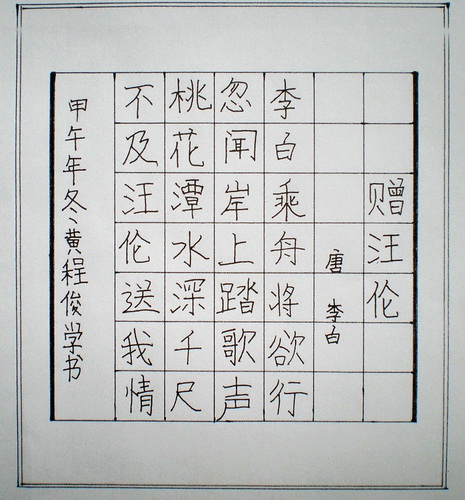 赠汪伦
唐 李白
李白乘舟将欲行
忽闻岸上踏歌声
桃花潭水深千尺
不及汪伦送我情
甲午年冬黄程俊学书